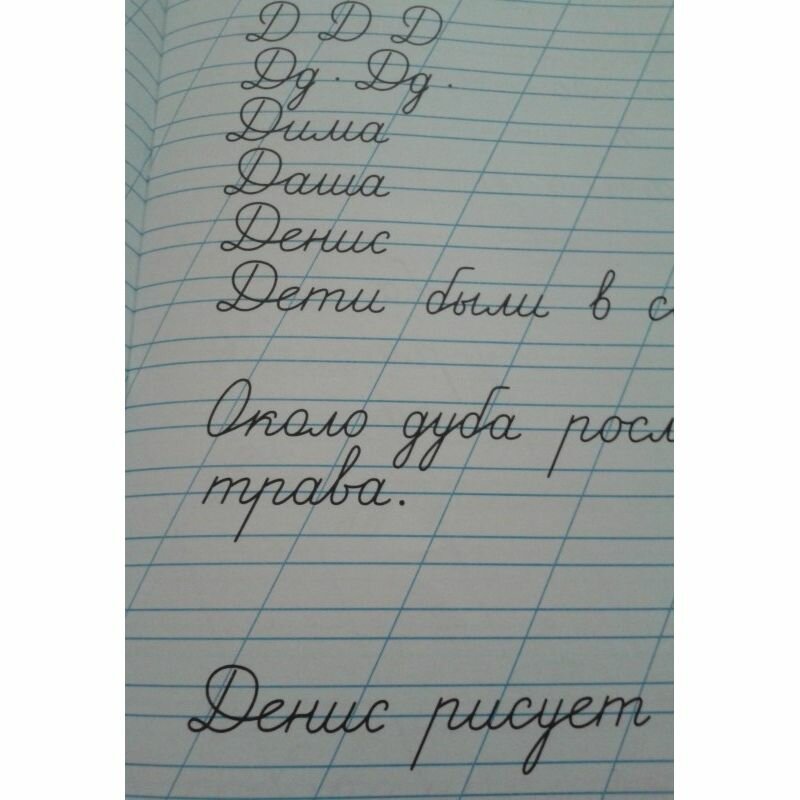 Д Д Д
Дд. Дд.
Дима
Даша
Денис
Дети были в
Около дуба
трава.
Денис рисует